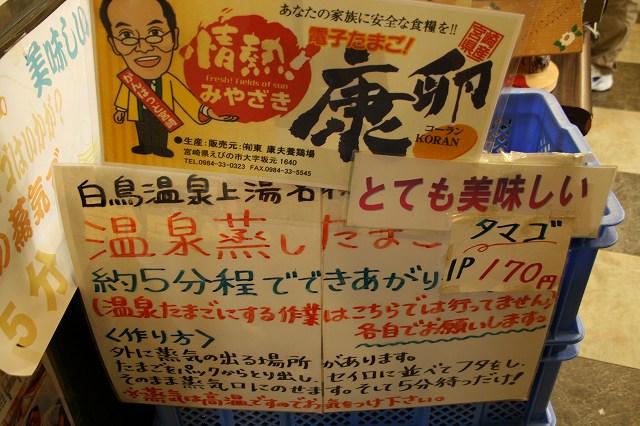 美味しい
あなたの家族に安全な食糧を!!
宮崎県産
電子たまご!
情熱!
Fresh! Fields of sun
みやざき
がんばっど宮崎
康卵
コーラン
KORAN
●生産・販売元:(有)東 康夫養鶏場
宮崎県えびの市大字坂元 1640
TEL.0984-33-0323 FAX.0984-33-5545
白鳥温泉上湯名
とても美味しい
温泉蒸したまご
タマゴ
1P 170円
約5分程でできあがり
(温泉たまごにする作業はこちらでは行ってません)
各自でお願いします。
〈作り方〉
外に蒸気の出る場所があります。
たまごをパックからとり出し、セイロに並べてフタをし、
そのまま蒸気口にのせます。そして5分待つだけ!
※蒸気は高温ですのでお気をつけ下さい。
蒸気で
5分